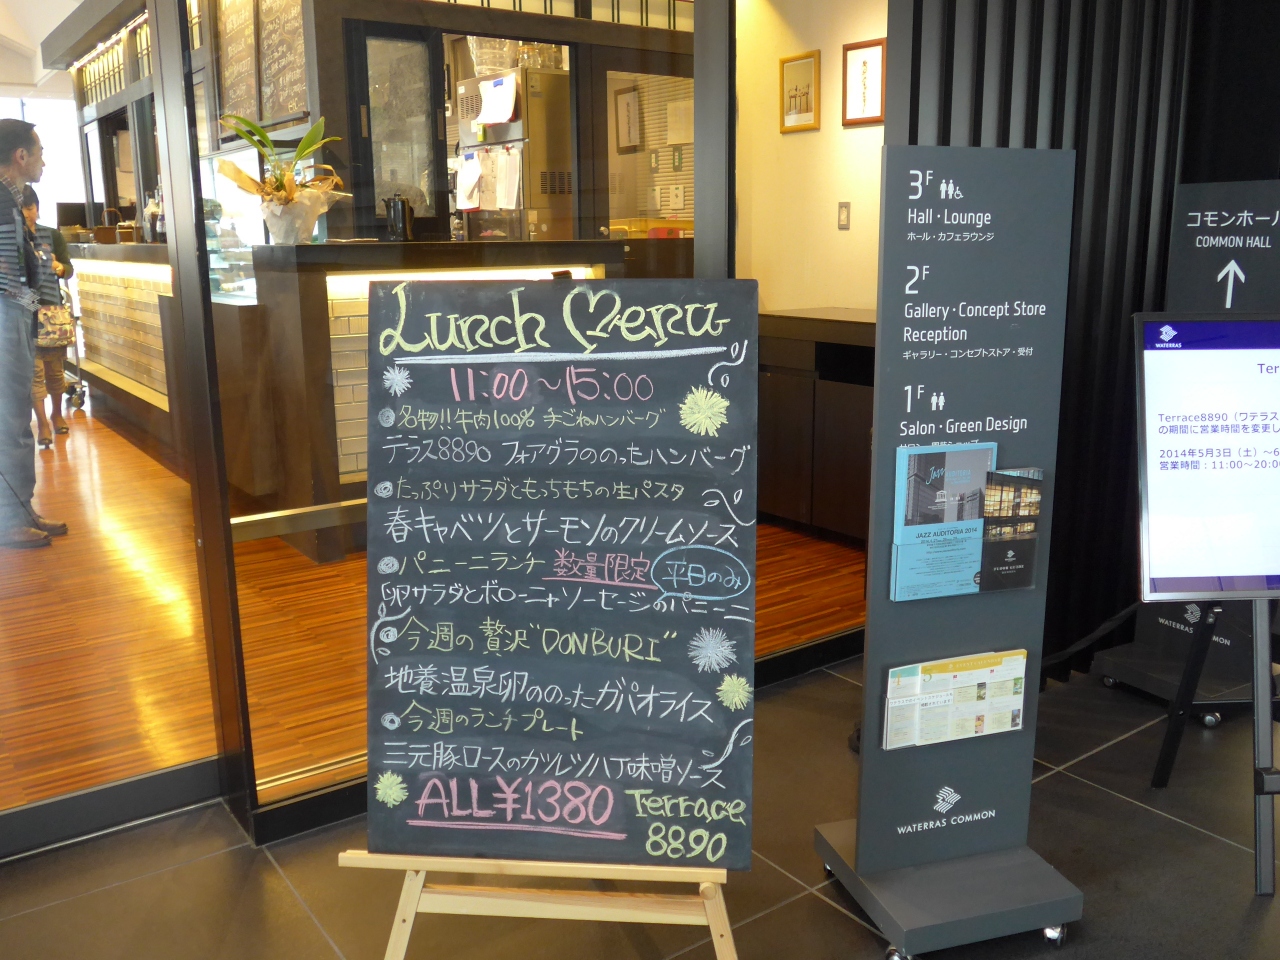 Lunch Menu
11:00〜15:00
名物!!牛肉100% 手ごねハンバーグ
テラス8890 フォアグラののったハンバーグ
たっぷりサラダともっちもちの生パスタ
春キャベツとサーモンのクリームソース
パニーニランチ 数量限定 平日のみ
卵サラダとボローニャソーセージのパニーニ
今週の贅沢"DONBURI"
地養温泉卵ののったガパオライス
今週のランチプレート
三元豚ロースのカツレツ八丁味噌ソース
ALL¥1380
Terrace
8890
3F
Hall・Lounge
ホール・カフェラウンジ
2F
Gallery・Concept Store
Reception
ギャラリー・コンセプトストア・受付
1F
Salon・Green Design
JAZZ AUDITORIA 2014
WATERRAS COMMON
コモンホール
COMMON HALL
WATERRAS
Ter
Terrace8890（ワテラス
の期間に営業時間を変更し
2014年5月3日（土）〜6
営業時間：11:00〜20:00
WATERRAS COMMON